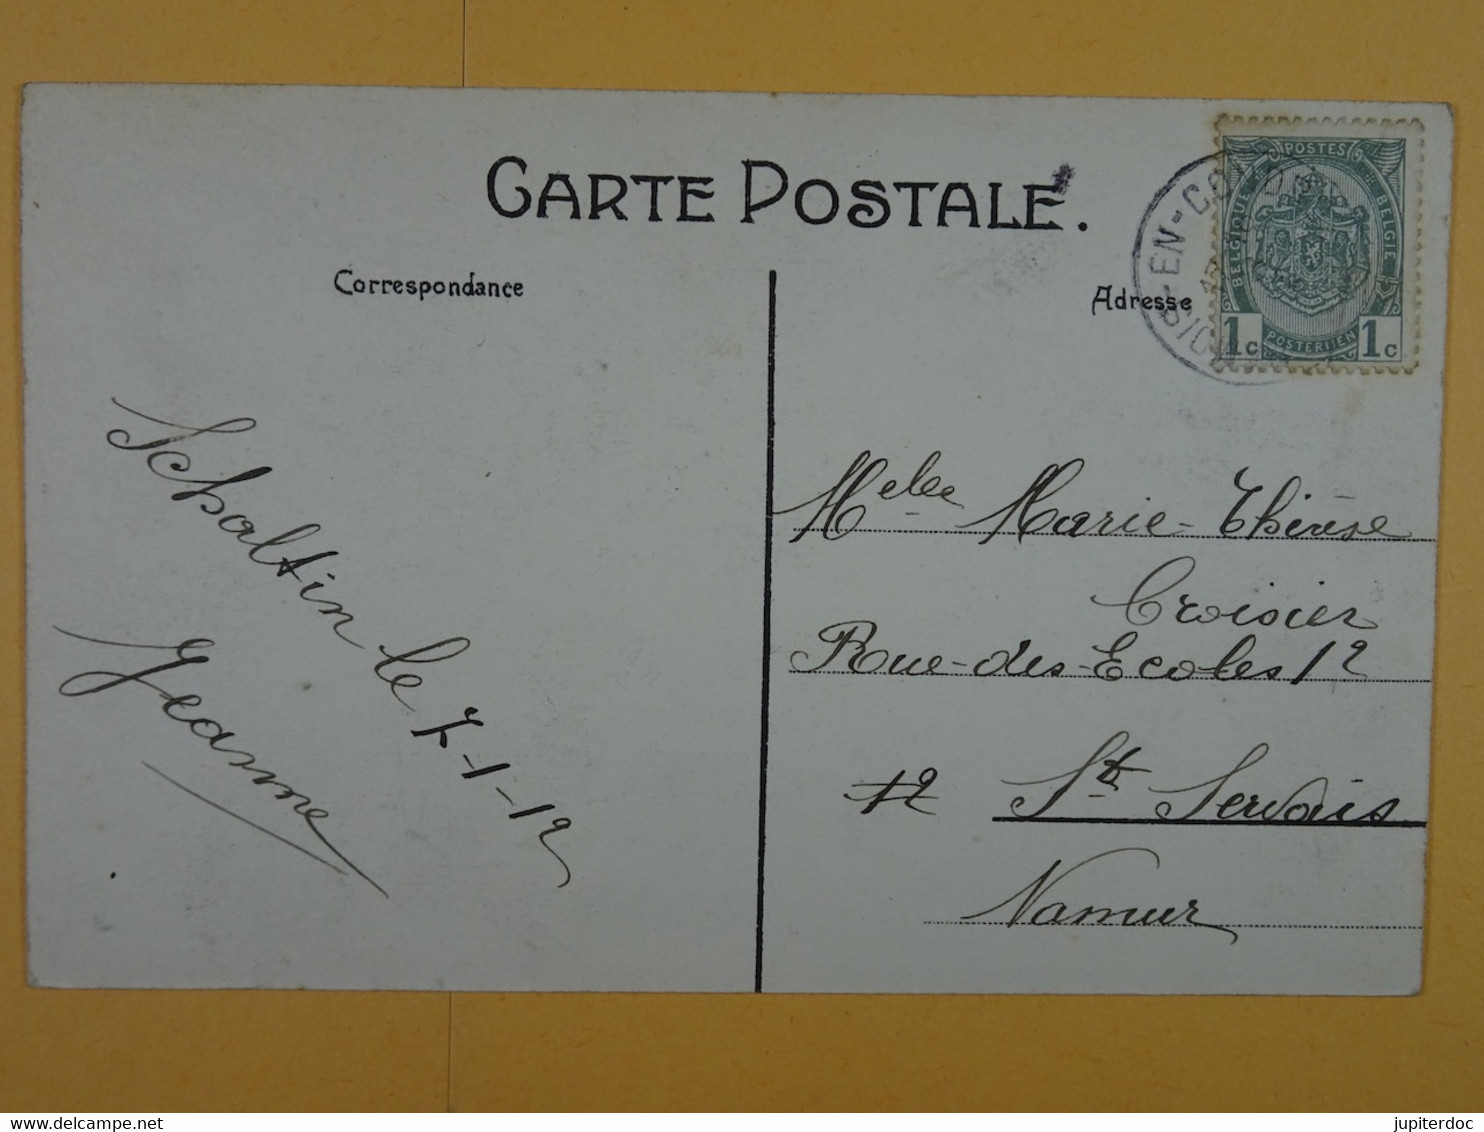 CARTE POSTALE.
Correspondance
Adresse
POSTES
BELGIQUE
BELGIE
POSTERIJEN
1c 1c
EN-CO
Schaltin le 7-1-12
Jeanne
Melle Marie-Thérèse
Croisier
Rue-des-Ecoles 12
12 St. Servais
Namur
delcampe.net
jupiterdoc